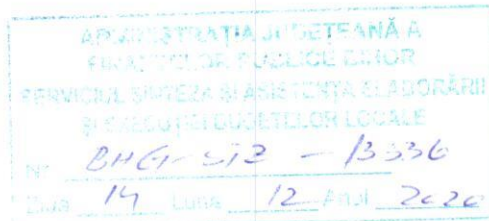 ADMINISTRAȚIA JUDEȚEANĂ A
FINANȚELOR PUBLICE BIHOR
SERVICIUL SINTEZA ȘI ASISTENȚA ELABORĂRII
ȘI EXECUȚIEI BUGETELOR LOCALE
Nr. - 13336
Ziua 14 Luna 12 Anul 2020